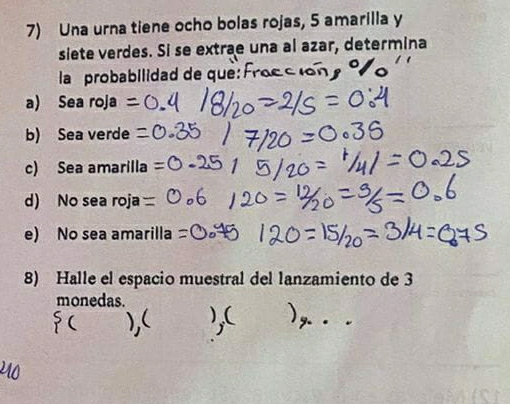 7) Una urna tiene ocho bolas rojas, 5 amarilla y
siete verdes. Si se extrae una al azar, determina
la probabilidad de que: Fracción, "%"
a) Sea roja = 0.4 / 8/20 = 2/5 = 0.4
b) Sea verde = 0.35 / 7/20 = 0.35
c) Sea amarilla = 0.25 / 5/20 = 1/4 / = 0.25
d) No sea roja = 0.6 / 20 = 12/20 = 3/5 = 0.6
e) No sea amarilla = 0.75 / 20 = 15/20 = 3/4 = 0.75
8) Halle el espacio muestral del lanzamiento de 3
monedas.
{( ),( ),( ), . . .